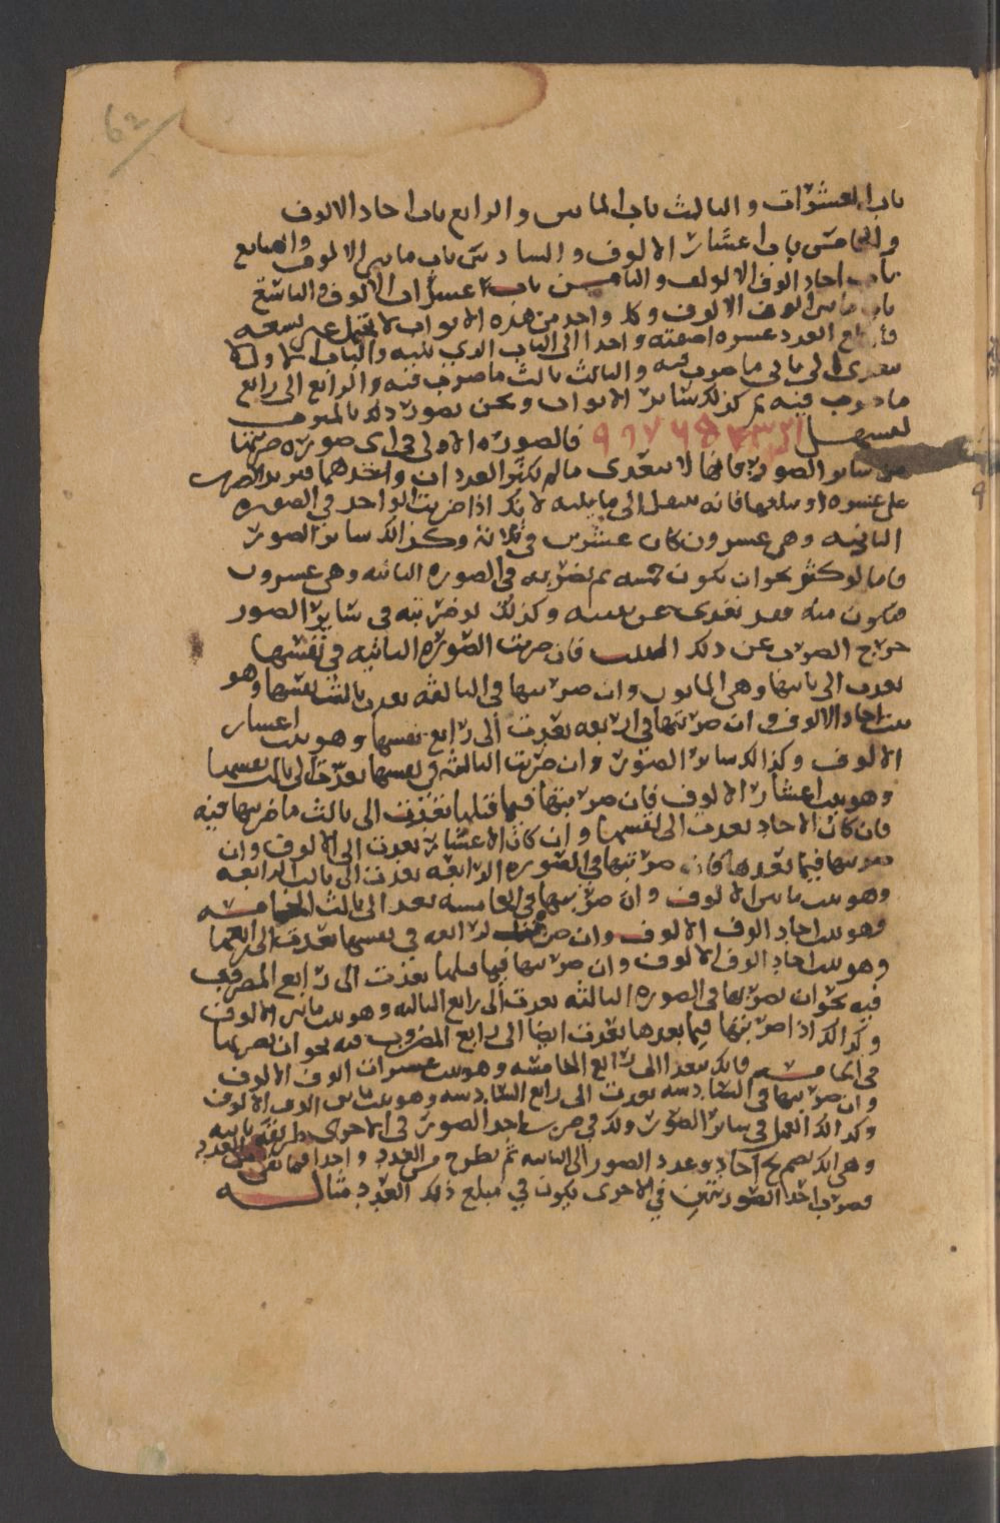 62
باب العشرات والثالث باب المايين والرابع باب احاد الالوف
والخامس باب اعشار الالوف والسادس باب مايين الالوف والسابع
باب احاد الوف الالوف والثامن باب عشرات الالوف والتاسع
باب مايين الوف الالوف وكل واحد من هذه الابواب لا يحتمل غير تسعه
فاذا بلغ العدد عشره اضفته واحدا الى الباب الذي يليه والباب الاول
يتعدى الى ثاني ما ضرب فيه والثالث ثالث ما ضرب فيه والرابع الى رابع
ما ضرب فيه ثم كذلك سائر الابواب ونحن نصور ذلك
١ ٢ ٣ ۴ ۵ ۶ ٧ ٨ ٩ فالصوره الاولى في اي صوره ضربتها
من سائر الصور فانها لا تتعدى ما لم يكثر العددان واخدهما فيزيد الضرب
على عشره او يبلغها فانه ينتقل الى ما يليه لانك اذا ضربت الواحد في الصوره
الثانيه وهي عشرون كان عشرين في ثلاثة وكذالك سائر الصور
فاما لو كثر نحو ان يكون خمسه ثم تضربه في الصوره الثانيه وهي عشرون
فتكون مئه فقد تعدى عن بيته وكذلك لو ضربته في سائر الصور
خرج الضرب عن ذلك البيت فان ضربت الصوره الثانيه في نفسها
تعدت الى ثانيها وهي المايون وان ضربتها في الثالثه تعدت ثالث نفسها وهو
بيت احاد الالوف وان ضربتها في اربعه تعدت الى رابع نفسها وهو بيت اعشار
الالوف وكذالك سائر الصور وان ضربت الثالثه في نفسها تعدت الى ثالث نفسها
وهو بيت اعشار الالوف فان ضربتها فيما قبلها تعدت الى ثالث ما ضربتها فيه
فان كان الاحاد تعدت الى نفسها وان كان الاعشار تعدت الى الالوف وان
ضربتها فيما بعدها فان ضربتها في الصوره الرابعه تعدت الى ثالث الرابعه
وهو بيت مايين الالوف وان ضربتها في الخامسه تعد الى ثالث الخامسه
وهو بيت احاد الوف الالوف وان ضربت الرابعه في نفسها تعدت الى رابعها
وهو بيت احاد الوف الالوف وان ضربتها فيما قبلها تعدت الى رابع المضروب
فيه نحو ان تضربها في الصوره الثالثه تعدت الى رابع الثالثه وهو بيت مايين الالوف
وكذالك اذا ضربتها فيما بعدها تعدت ايضا الى رابع المضروب فيه نحو ان تضربها
في الخامسه فانك تتعدا الى رابع الخامسه وهو بيت عشرات الوف الالوف
وان ضربتها في السادسه تعدت الى رابع السادسه وهو بيت مايين الوف الالوف
وكذالك العمل في سائر الصور ولك في ضرب احد الصور في الاخرى طريقه ثانيه
وهي انك تجمع احاد وعدد الصور الى الثانيه ثم تطرح من العدد واحدا فما بقي من العدد
فضرب احد الصورتين في الاخرى يكون في مبلغ ذلك العدد مثاله